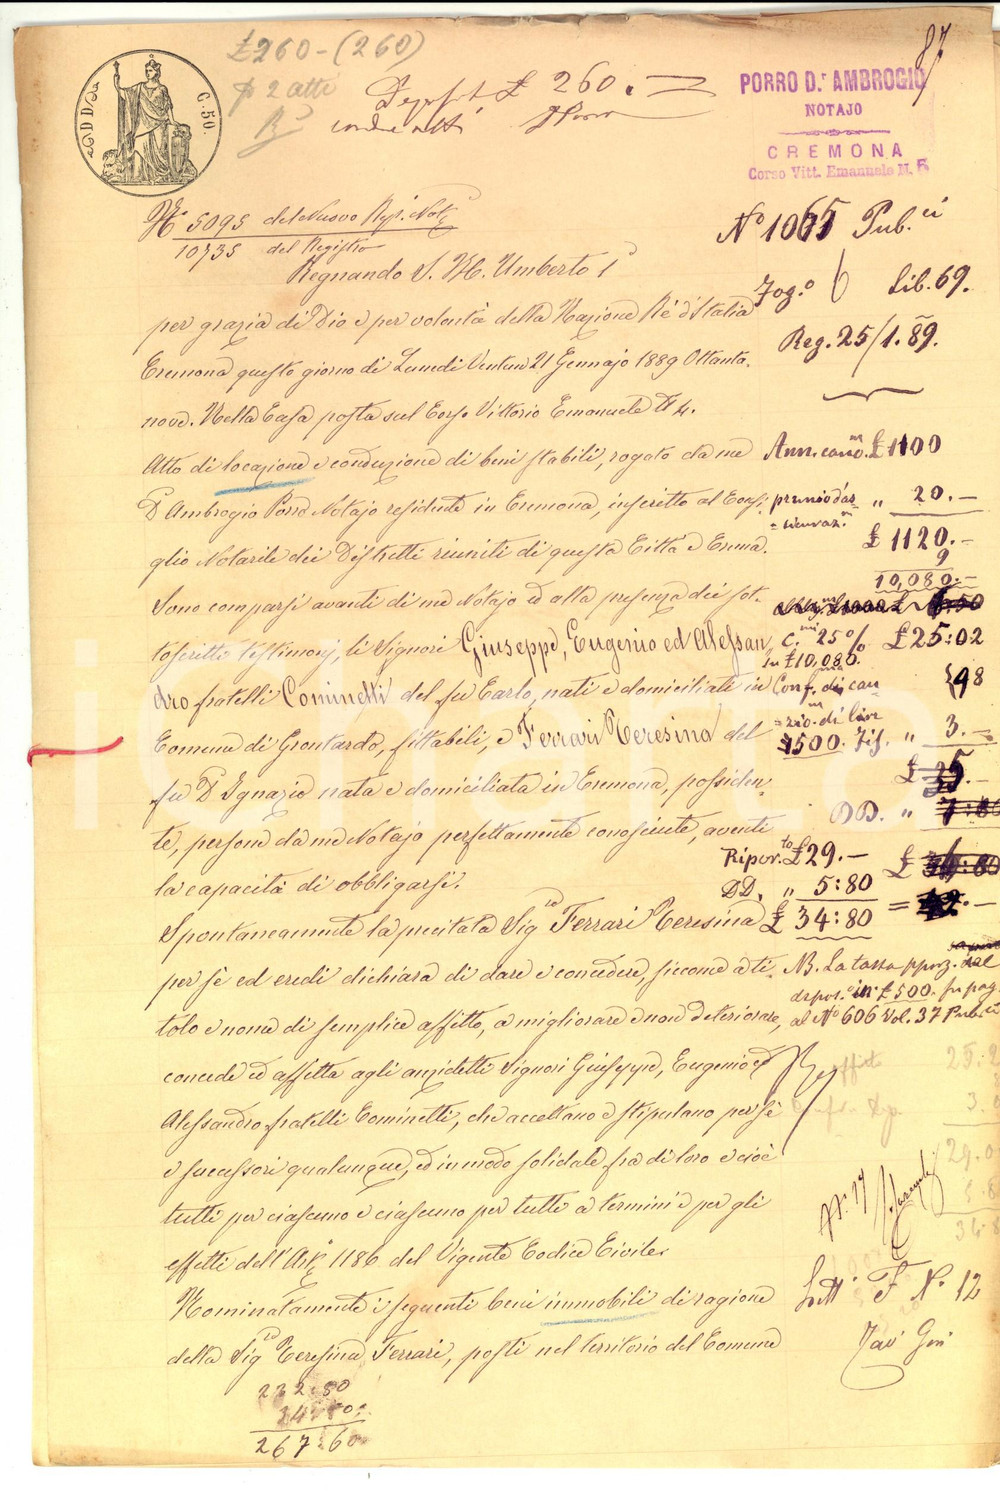 87
£260-(260)
p 2 atti
£ 260.
PORRO D.r AMBROGIO
NOTAJO
CREMONA
Corso Vitt. Emanuele N. 5
C. 50.
N° 5095 del Nuovo Rep. Not.
10735 del Registro
N° 1065 Pub.ci
Regnando S. M. Umberto I°
Fog.° 6 Lib. 69.
per grazia di Dio e per volontà della Nazione Rè d'Italia
Reg. 25/1. 89.
Cremona questo giorno di Lunedì Ventuno 21 Gennajo 1889 Ottanta.
nove. Nella Casa posta sul Corso Vittorio Emanuele N 4.
Atto di locazione e conduzione di beni stabili, rogato da me
Ann. can. £1100
D.r Ambrogio Porro Notajo residente in Cremona, inscritto al Consi,
premio d'as " 20.-
=sicuraz.n
£ 1120.-
glio Notarile dei Distretti riuniti di questa Città e Crema.
9
10,080.-
Sono comparsi avanti di me Notajo ed alla presenza dei sot.
toscritti testimonj, li Signori Giuseppe, Eugenio ed Alessan
C.mi 25 % £25:02
su £10,080.
dro fratelli Cominetti del fu Carlo, nati e domiciliati in
Conf. di cau
98
=zio.n di lire
Comune di Grontardo, fittabili, e Ferrari Teresina del
1500. Fis. " 3.-
fu D. Ignazio nata e domiciliata in Cremona, possiden,
DD. "
te, persone da me Notajo perfettamente conosciute, aventi
Ripor.to £29.-
la capacità di obbligarsi.
DD. " 5:80
Spontaneamente la precitata Sig.ra Ferrari Teresina
£ 34:80
per sè ed eredi dichiara di dare e concedere, siccome a ti.
NB. La tassa pporz.
depos.° in £500. fu pag.
tolo e nome di semplice affitto, a migliorare e non deteriorare,
al N° 606 Vol. 37 Pub.ci
concede ed affitta agli anzidetti Signori Giuseppe, Eugenio ed
Alessandro fratelli Cominetti, che accettano e stipulano per sè
e successori qualunque, ed in modo solidale fra di loro e cioè
tutti per ciascuno e ciascuno per tutti a termini e per gli
effetti dell'Art. 1186 del Vigente Codice Civile.
N. 17
Nominatamente i seguenti beni immobili di ragione
F N. 12
della Sig.ra Teresina Ferrari, posti nel territorio del Comune
232:80
34:80
267:60